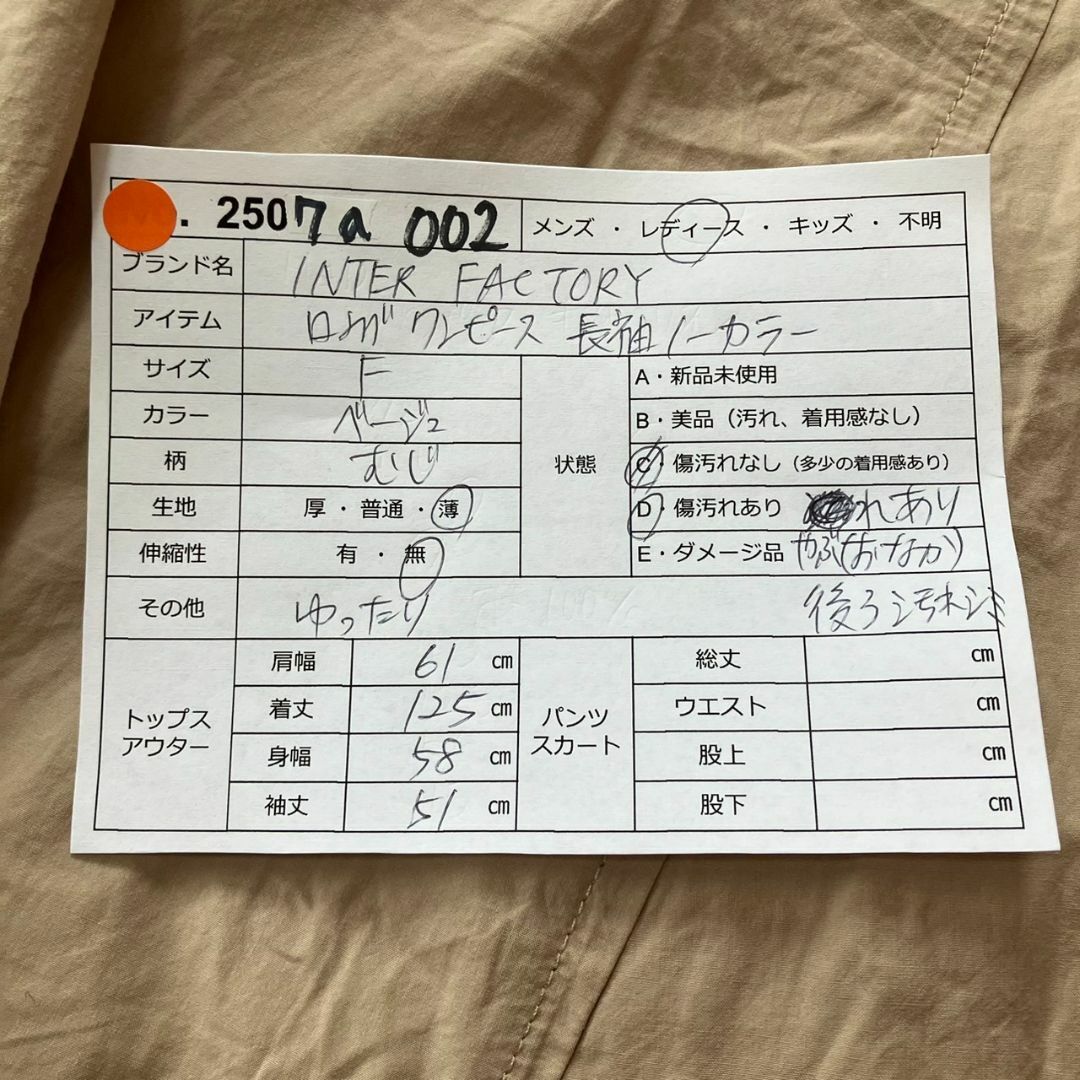 . 2507a 002 メンズ ・ レディース ・ キッズ ・ 不明
ブランド名 INTER FACTORY
アイテム ロング ワンピース 長袖 ノーカラー
サイズ F
カラー ベージュ
柄 むじ
生地 厚 ・ 普通 ・ 薄
伸縮性 有 ・ 無
状態
A・新品未使用
B・美品（汚れ、着用感なし）
C・傷汚れなし（多少の着用感あり）
D・傷汚れあり れあり
E・ダメージ品 (おなか)
その他 ゆったり 後ろ汚れシミ
トップス
アウター
肩幅 61 ㎝
着丈 125 ㎝
身幅 58 ㎝
袖丈 51 ㎝
パンツ
スカート
総丈 ㎝
ウエスト ㎝
股上 ㎝
股下 ㎝